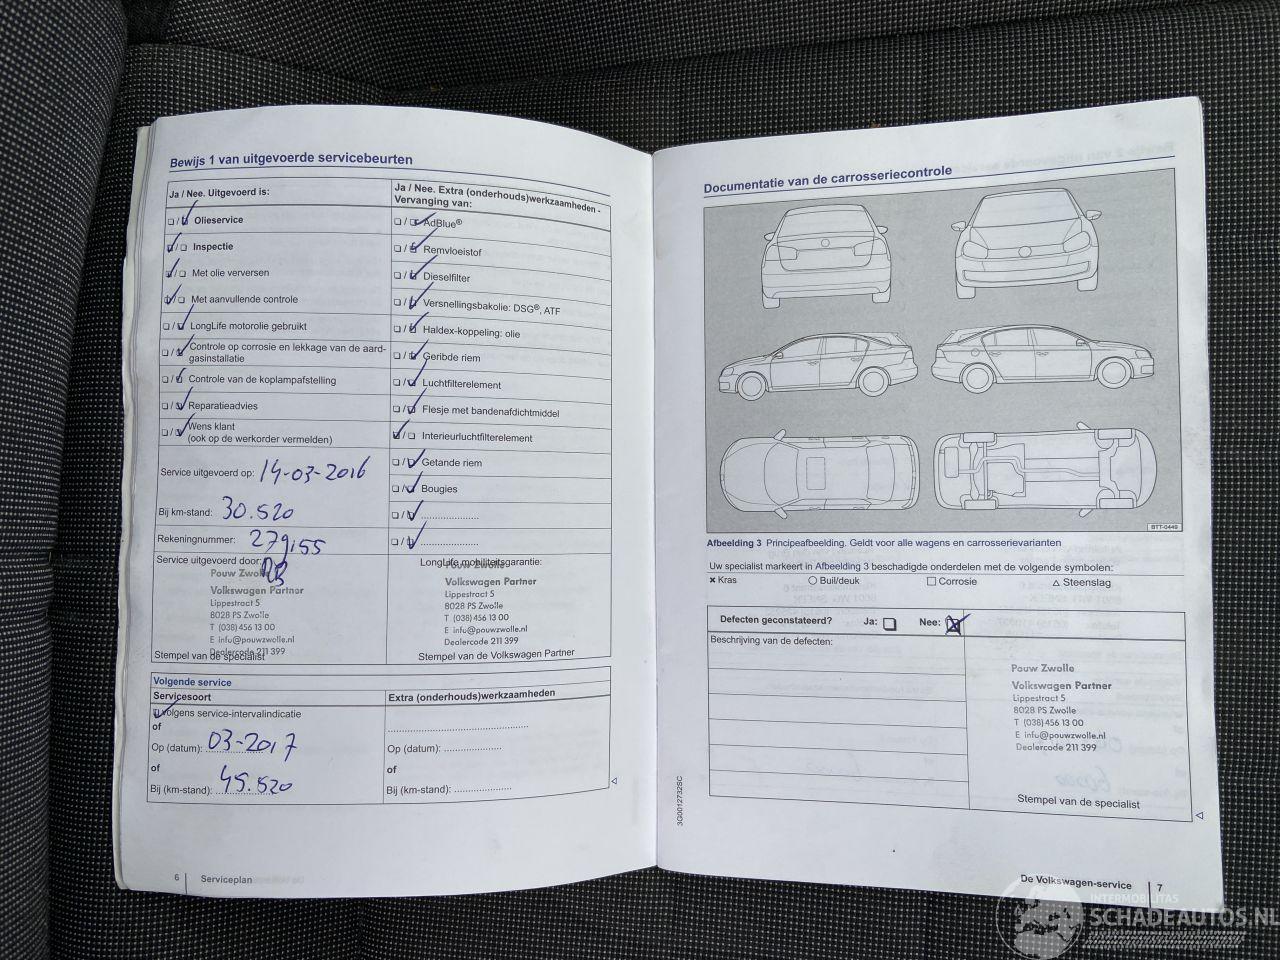 Bewijs 1 van uitgevoerde servicebeurten
Ja / Nee. Uitgevoerd is:
Olieservice
Inspectie
Met olie verversen
Met aanvullende controle
LongLife motorolie gebruikt
Controle op corrosie en lekkage van de aard-
gasinstallatie
Controle van de koplampafstelling
Reparatieadvies
Wens klant
(ook op de werkorder vermelden)
Service uitgevoerd op: 14-03-2016
Bij km-stand: 30.520
Rekeningnummer: 279155
Service uitgevoerd door:
Pouw Zwolle
Volkswagen Partner
Lippestract 5
8028 PS Zwolle
T (038) 456 13 00
E info@pouwzwolle.nl
Dealercode 211 399
Stempel van de specialist
Ja / Nee. Extra (onderhouds)werkzaamheden -
Vervanging van:
AdBlue®
Remvloeistof
Dieselfilter
Versnellingsbakolie: DSG®, ATF
Haldex-koppeling: olie
Geribde riem
Luchtfilterelement
Flesje met bandenafdichtmiddel
Interieurluchtfilterelement
Getande riem
Bougies
LongLife mobiliteitsgarantie:
Pouw Zwolle
Volkswagen Partner
Lippestract 5
8028 PS Zwolle
T (038) 456 13 00
E info@pouwzwolle.nl
Dealercode 211 399
Stempel van de Volkswagen Partner
Volgende service
Servicesoort
Volgens service-intervalindicatie
of
Op (datum): 03-2017
of
Bij (km-stand): 45.520
Extra (onderhouds)werkzaamheden
Op (datum):
of
Bij (km-stand):
6 Serviceplan
Documentatie van de carrosseriecontrole
BTT-0449
Afbeelding 3 Principeafbeelding. Geldt voor alle wagens en carrosserievarianten
Uw specialist markeert in Afbeelding 3 beschadigde onderdelen met de volgende symbolen:
Kras Buil/deuk Corrosie Steenslag
Defecten geconstateerd? Ja: Nee:
Beschrijving van de defecten:
Pouw Zwolle
Volkswagen Partner
Lippestract 5
8028 PS Zwolle
T (038) 456 13 00
E info@pouwzwolle.nl
Dealercode 211 399
Stempel van de specialist
3G0012732SC
De Volkswagen-service 7
INTERMOBILITAS
SCHADEAUTOS.NL